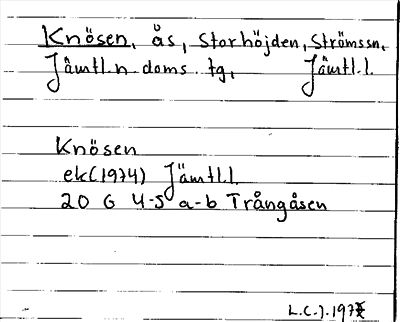 Knösen, ås, Storhöjden, Strömssn,
Jämtl. n. doms. tg, Jämtl. l.
Knösen
ek (1974) Jämtl.l.
20 G 4-5 a-b Trångåsen
L.C.J. 197